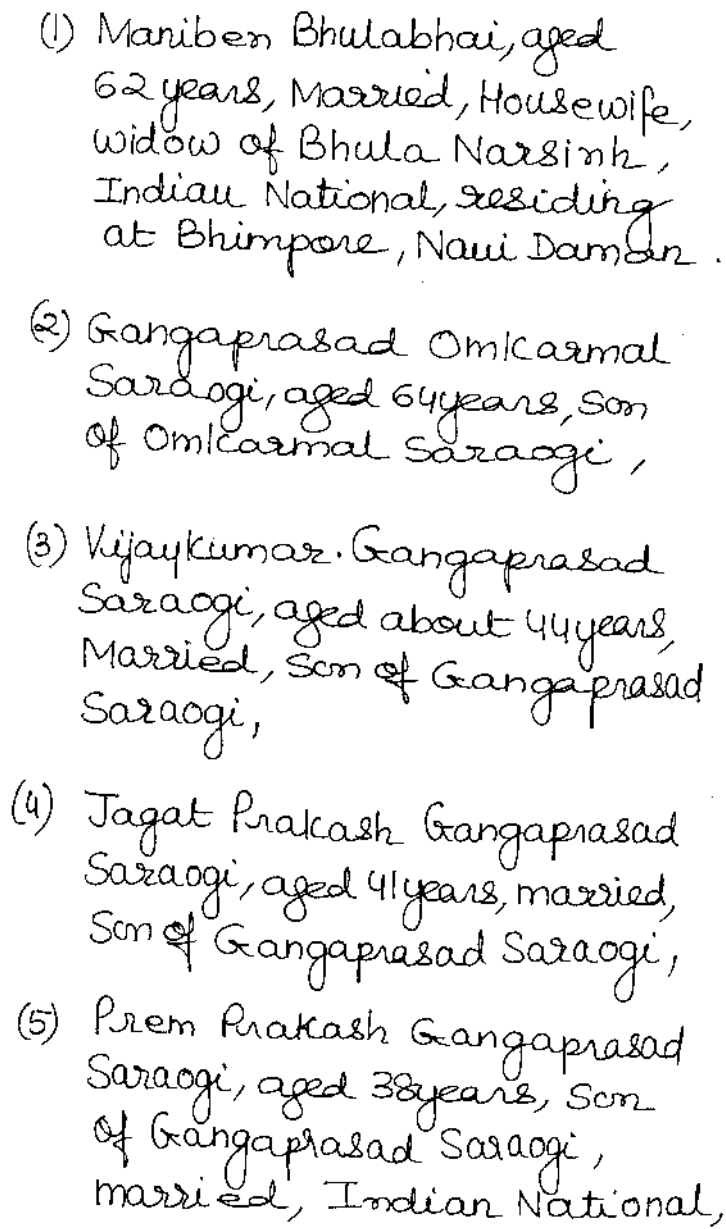 (1) Maniben Bhulabhai, aged
62 years, Married, Housewife,
widow of Bhula Narsinh,
Indian National, residing
at Bhimpore, Naui Daman.
(2) Gangaprasad Omkarmal
Saraogi, aged 64 years, son
of Omkarmal Saraogi,
(3) Vijaykumar. Gangaprasad
Saraogi, aged about 44 years,
Married, Son of Gangaprasad
Saraogi,
(4) Jagat Prakash Gangaprasad
Saraogi, aged 41 years, married,
Son of Gangaprasad Saraogi,
(5) Prem Prakash Gangaprasad
Saraogi, aged 38 years, Son
of Gangaprasad Saraogi,
married, Indian National,